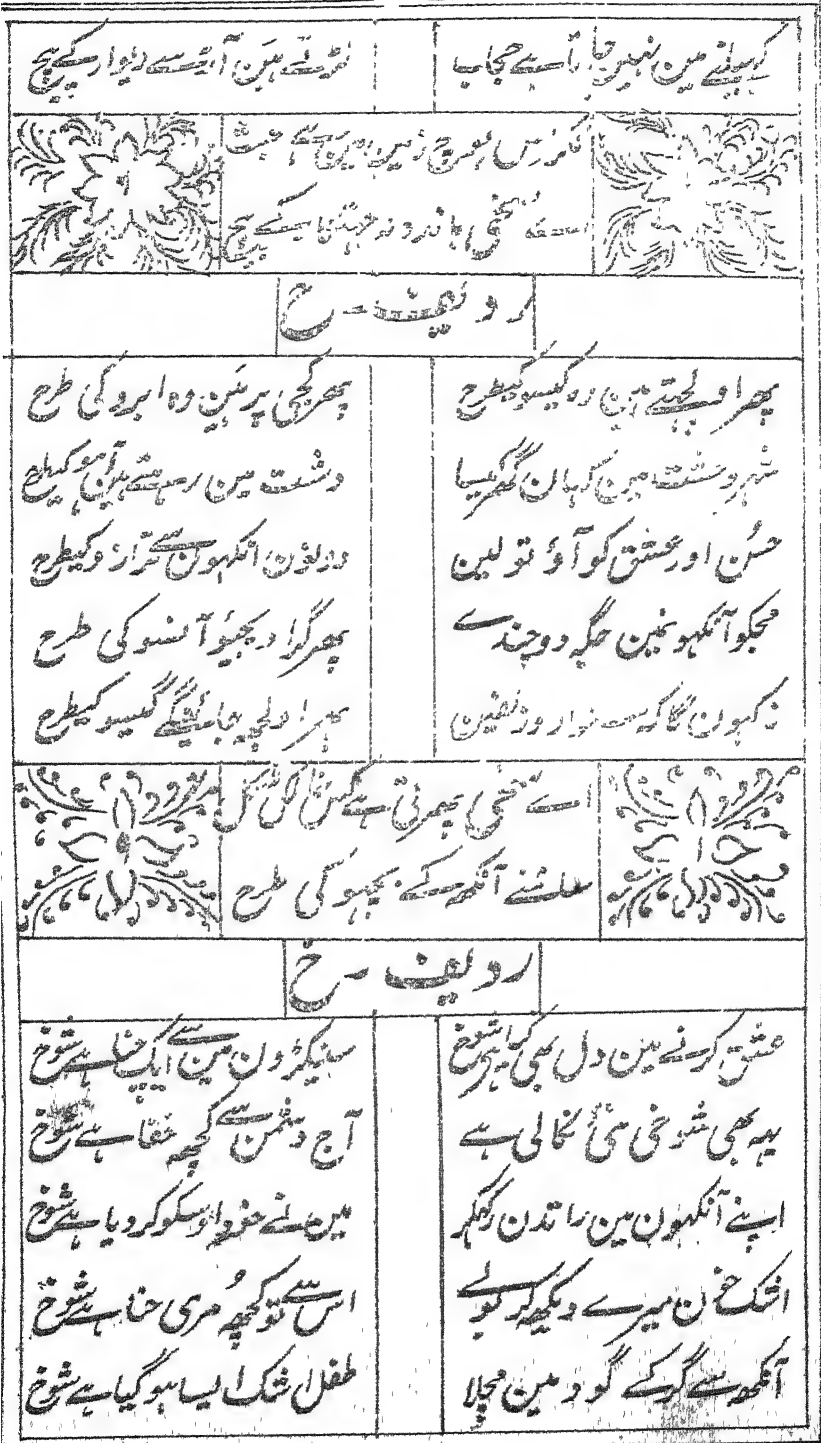 کہولنے مین نہین جاتا ہے حجاب لڑتے ہین آڑ سے دیوار کے بیچ
فکر اس طرح زمین مین ہے عبث
اے سخی باندہو نہ کے بیچ
ردیف - ح
پھر اولجہتے ہین وہ گیسو کیطرح پھر کجی پر ہین وہ ابرو کی طرح
شہر وحشت مین کہان گھر کیسا دشت مین رہتے ہین آہو کیطرح
حسُن اور عشق کو آؤ تولین دونون انکہون سے ترازو کیطرح
مجکو آنکہو نمین جگہ دو چندے پھر گرا دیجیؤ آنسو کی طرح
نہ کہون گا کہ سنوارو زلفین پھر اولجہ جائینگے گیسو کیطرح
اے سخی پھرتی ہے کس کی کاکل
سامنے آنکھ کے بچہو کی طرح
ردیف - خ
عشق کرنے مین دل بھی کیا ہے شوخ سینکڑون مین سے ایک چنا ہے شوخ
یہہ بھی شوخی نئی نکالی ہے آج دشمن سے کچھ خفا ہے شوخ
اپنے آنکہون مین راتدن رکہکر مین نے خود اوسکو کردیا ہے شوخ
اشک خون میرے دیکھ کر بولے اس سے تو کچھُ مری حنا ہے شوخ
آنکھ سے گر کے گود مین مچلا طفل اشک ایسا ہوگیا ہے شوخ